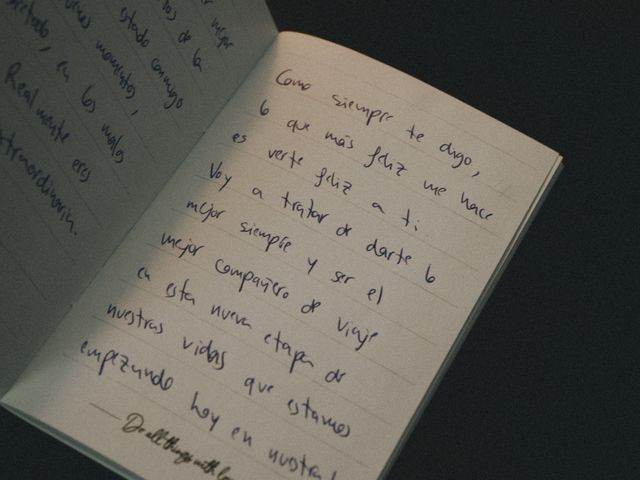 mejor
de la
estado conmigo
momentos,
en los malos
Realmente eres
Como siempre te digo,
lo que más feliz me hace
es verte feliz a ti.
Voy a tratar de darte lo
mejor siempre y ser el
mejor compañero de viaje
en esta nueva etapa de
nuestras vidas que estamos
empezando hoy en
Do all things with